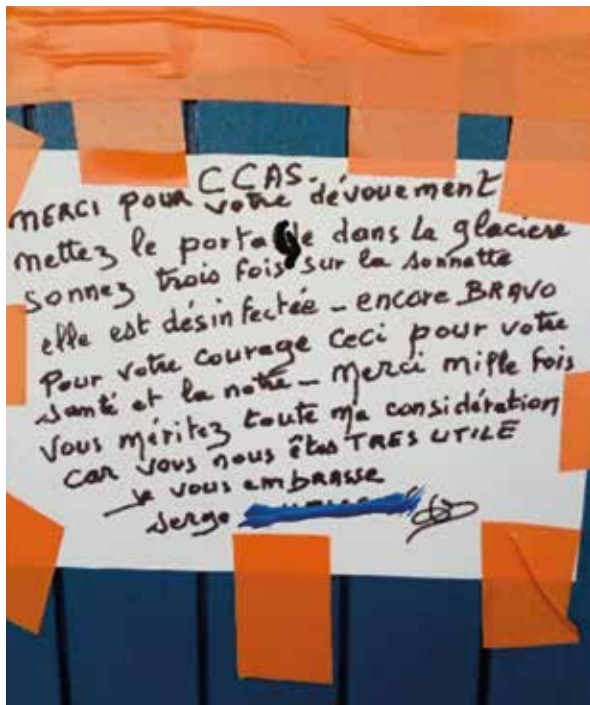 CCAS-
MERCI pour votre dévouement
mettez le portage dans la glaciere
sonnez trois fois sur la sonnette
elle est désinfectée - encore BRAVO
Pour votre courage ceci pour votre
santé et la notre - merci mille fois
Vous méritez toute ma considération
car vous nous êtes TRES UTILE
je vous embrasse
Serge